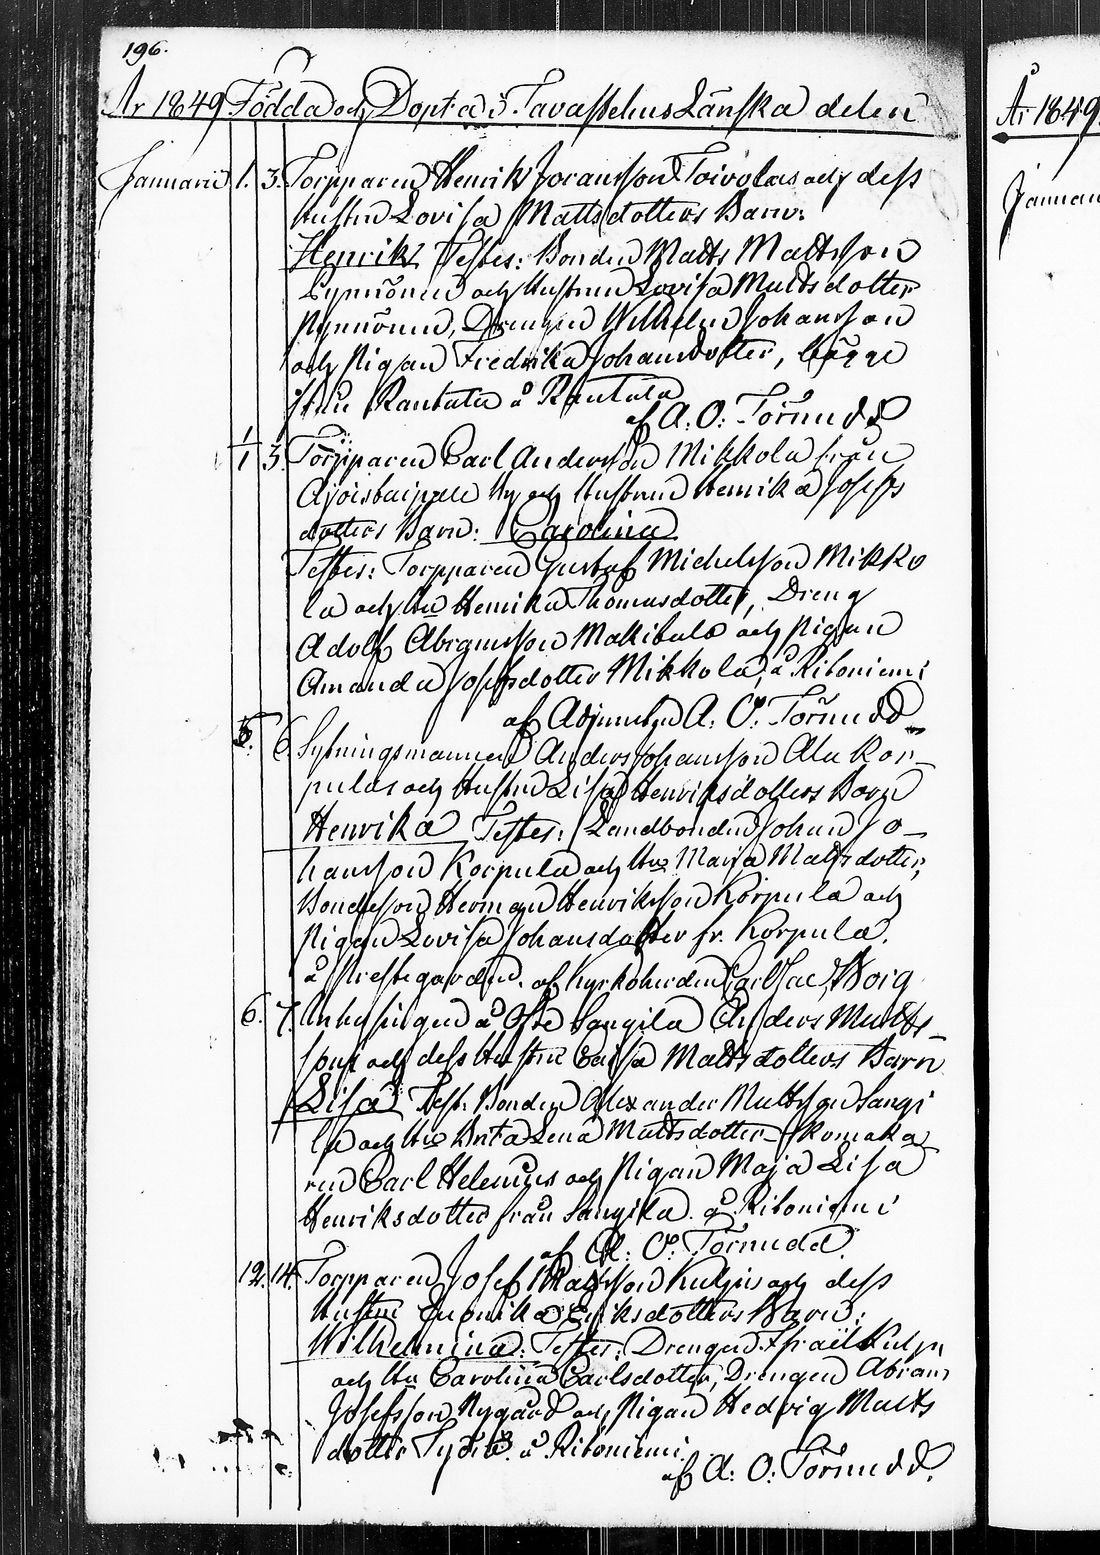 196.
År 1849 Födda och Döpta i Tavastehus Länska delen
År 1849
Januarii 1. 3. Torpparen Henrik Johansson Toivolas och dess
Januarii
hustru Lovisa Mattsdotters Barn:
Henrik Testes: Bonden Matts Mattsson
och hustrun Lovisa Mattsdotter
Drengen Wilhelm Johansson
och Pigan Fredrika Johansdotter, begge
från Rautula å Rautula
af A. O. Törnudd
1 3. Torpparen Carl Andersson Mikkola från
by och hustrun Henrika Josefs
dotters Barn: Carolina
Testes: Torpparen Gustaf Michelsson Mikko
la och Hu Henrika Thomasdotter, Dreng
Adolf Abramsson och Pigan
Amanda Josefsdotter Mikkola, å Riboniemi
af Adjuncten A. O. Törnudd
5. 6. Sytningsmannen Anders Johansson Ala Kor-
pulas och Hustru Lisa Henriksdotters Barn
Henrika Testes: Landbonden Johan Jo-
hansson Korpula och Hu Maria Mattsdotter,
Bondeson Herman Henriksson Korpula och
Pigan Lovisa Johansdotter fr. Korpula.
å Prestegården. af Kyrkoherden Carl Jac. Borg
6. 7. Inhysingen å Ofre Sangila Anders Matts-
sons och dess Hustru Caisa Mattsdotters Barn
Lisa Test: Bonden Alexander Mattsson Sangi
la och Hu Brita Lena Mattsdotter, Skomaka
ren Carl Helenius och Pigan Maja Lisa
Henriksdotter från Sangila. å Riboniemi
af A. O. Törnudd.
12. 14. Torpparen Josef Mattsson Kuljus och dess
Hustru Eriksdotters Barn:
Wilhelmina: Testes: Drengen Israel Kulju
och Hu Carolina Carlsdotter, Drengen Abram
Josefsson Nygård och Pigan Hedvig Matts
dotter å Riboniemi.
af A. O. Törnudd.